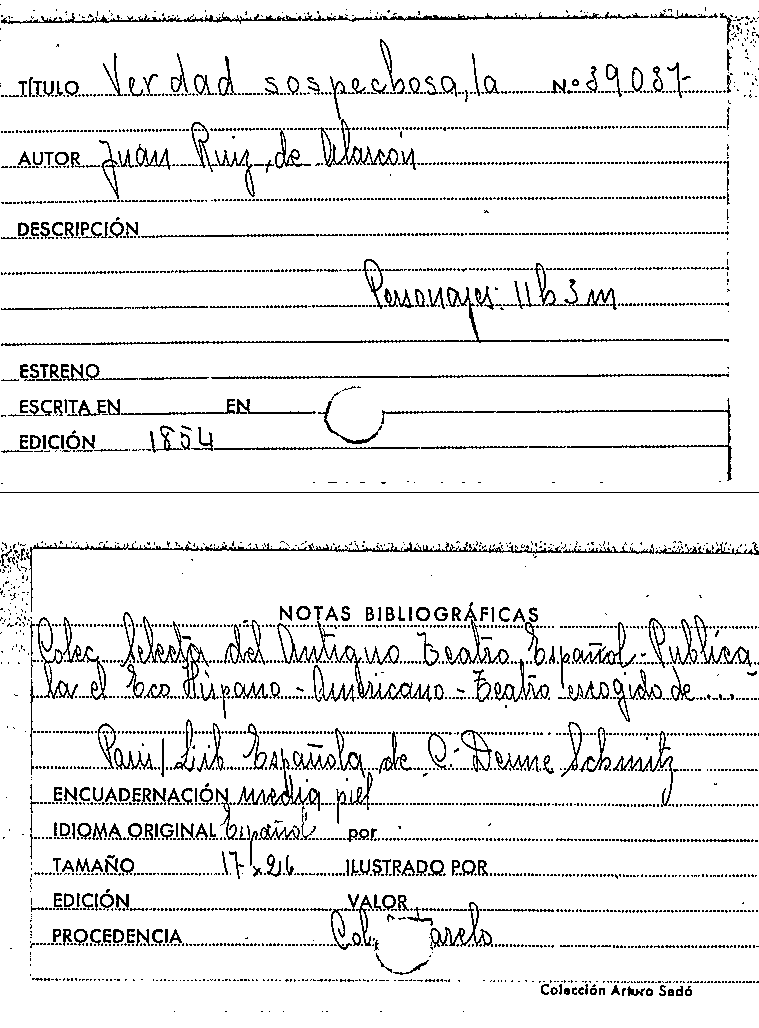 TÍTULO Verdad sospechosa, la Nº 39087
AUTOR Juan Ruiz de Alarcón
DESCRIPCIÓN
Personajes: 11 h 3 m
ESTRENO
ESCRITA EN EN
EDICIÓN 1854
NOTAS BIBLIOGRÁFICAS
Colec. Selecta del Antiguo Teatro Español - Publica
la el Eco Hispano-Americano - Teatro escogido de ...
Paris / Lib Española de C. Denne Schmitz
ENCUADERNACIÓN media piel
IDIOMA ORIGINAL Español por
TAMAÑO ILUSTRADO POR
EDICIÓN VALOR
PROCEDENCIA
Colección Arturo Sedó